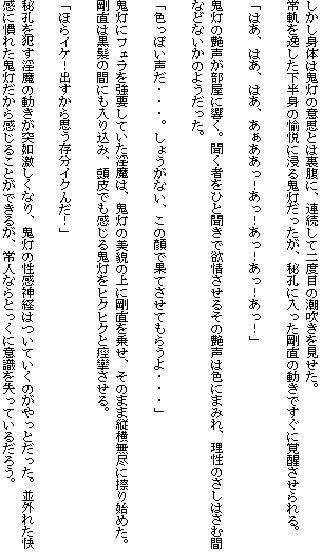 しかし身体は鬼灯の意思とは裏腹に、連続して二度目の潮吹きを見せた。
常軌を逸した下半身の愉悦に浸る鬼灯だったが、秘孔に入った剛直の動きですぐに覚醒させられる。
「はあ、はあ、はあ、あぁああっ！あっ！あっ！あっ！あっ！」
鬼灯の艶声が部屋に響く。聞く者をひと聞きで欲情させるその艶声は色にまみれ、理性のさしはさむ間
などないかのようだった。
「色っぽい声だ・・・。しょうがない、この顔で果てさせてもらうよ・・・」
鬼灯にフェラを強要していた淫魔は、鬼灯の美貌の上に剛直を乗せ、そのまま縦横無尽に擦り始めた。
剛直は黒髪の間にも入り込み、頭皮でも感じる鬼灯をヒクヒクと痙攣させる。
「ほらイケ！出すから思う存分イクんだ！」
秘孔を犯す淫魔の動きが突如激しくなり、鬼灯の性感神経はついていくのがやっとだった。並外れた快
感に慣れた鬼灯だから感じることができるが、常人ならとっくに意識を失っているだろう。